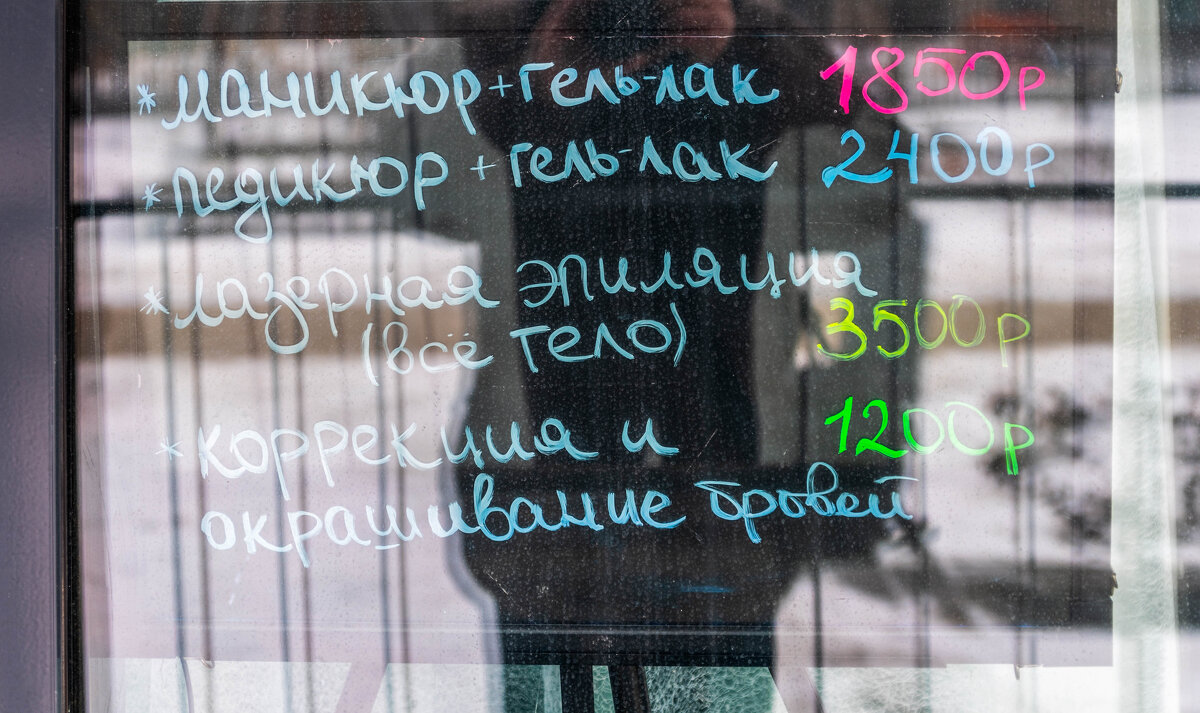 *маникюр+гель-лак 1850р
*педикюр+гель-лак 2400р
*лазерная эпиляция
(всё тело) 3500р
*коррекция и 1200р
окрашивание бровей